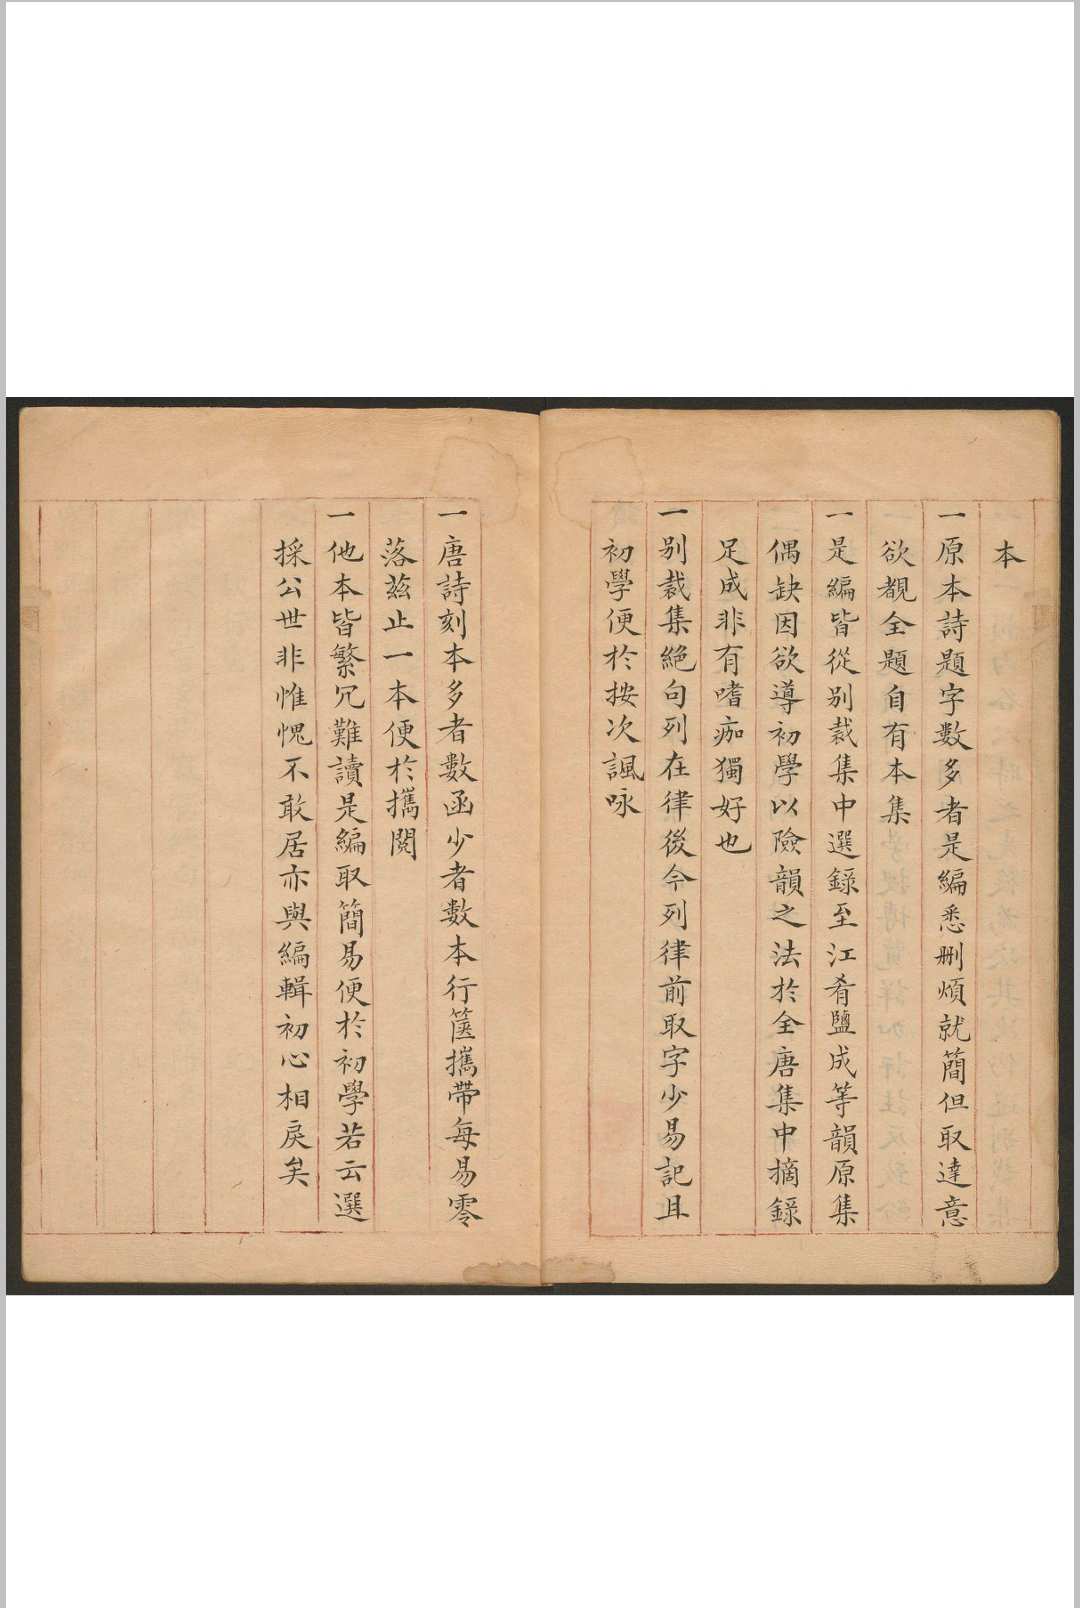 本
一原本詩題字數多者是編悉刪煩就簡但取達意
欲覩全題自有本集
一是編皆從別裁集中選錄至江肴鹽成等韻原集
偶缺因欲導初學以險韻之法於全唐集中摘錄
足成非有嗜痂獨好也
一別裁集絕句列在律後今列律前取字少易記且
初學便於按次諷咏
一唐詩刻本多者數函少者數本行篋攜帶每易零
落茲止一本便於攜閱
一他本皆繁冗難讀是編取簡易便於初學若云選
採公世非惟愧不敢居亦與編輯初心相戾矣